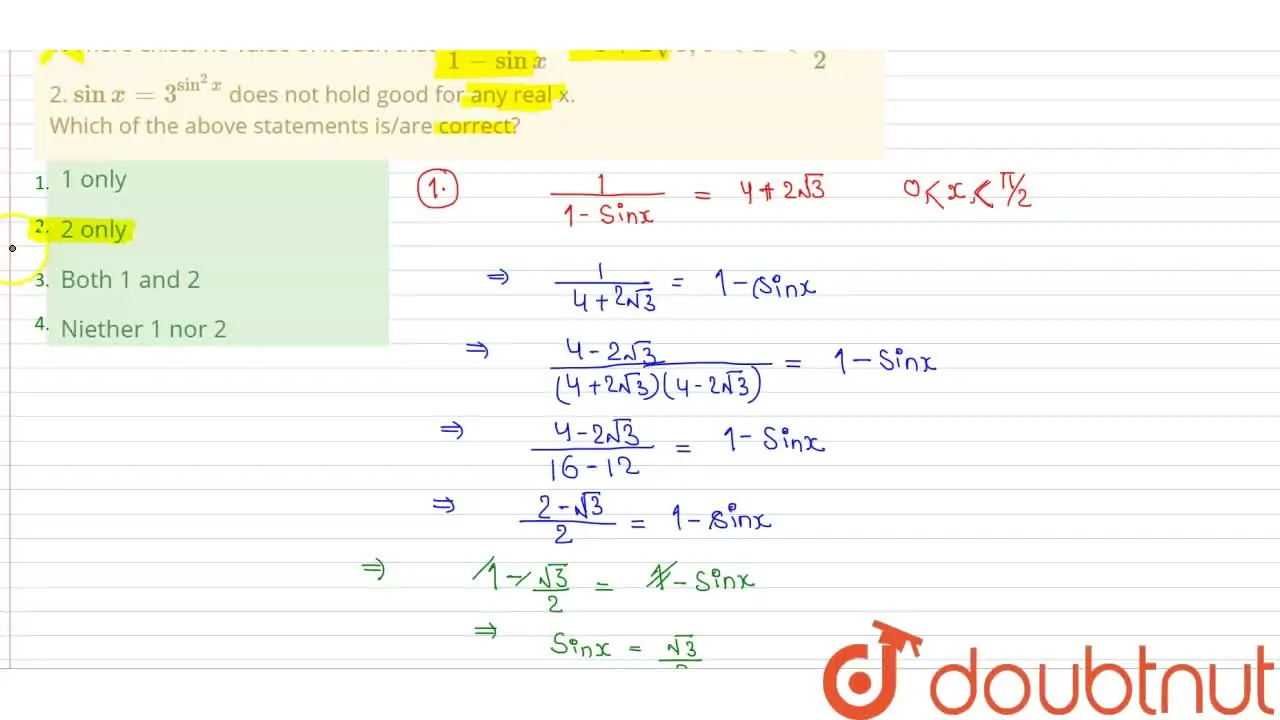 1 - sin x 2
2. sin x = 3^{sin^2 x} does not hold good for any real x.
Which of the above statements is/are correct?
1. 1 only
2. 2 only
3. Both 1 and 2
4. Niether 1 nor 2
1. 1/(1 - Sinx) = 4 + 2√3 0 < x < π/2
⇒ 1/(4 + 2√3) = 1 - Sinx
⇒ (4 - 2√3)/((4 + 2√3)(4 - 2√3)) = 1 - Sinx
⇒ (4 - 2√3)/(16 - 12) = 1 - Sinx
⇒ (2 - √3)/2 = 1 - Sinx
⇒ 1 - √3/2 = 1 - Sinx
⇒ Sinx = √3/2
doubtnut